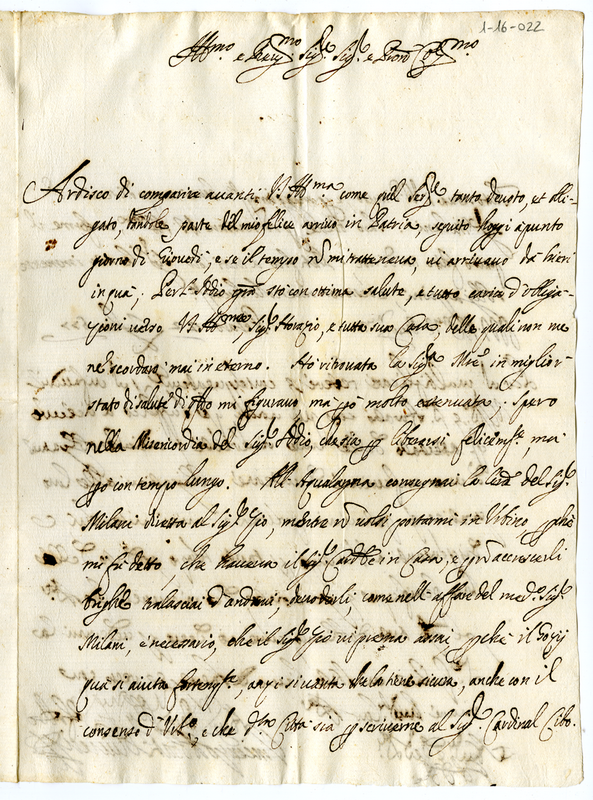 1-16-022
Ill.mo e Rev.mo Sig.re Sig.r e Pron Col.mo
Ardisco di comparire avanti V. S. Ill.ma come quel Ser.re tanto devoto, et obli-
gato, dandole parte del mio felice arrivo in Patria, seguito hoggi apunto
giorno di Giovedì, e se il tempo nõ mi tratteneva, vi arrivavo da hieri
in quà. Per Iddio grã sto con ottima salute, e tutto carico d'obliga-
zioni verso V. S. Ill.ma, Sig.r Horazio, e tutta sua Casa, delle quali non me
ne scordarò mai in eterno. Ho ritrovata la Sig.ra M.re in miglior
stato di salute di q.llo mi figuravo, ma però molto estenuata; Spero
nella Misericordia del Sig.r Iddio, che sia p liberarsi felicem.te, ma
però con tempo lungo. All' Aqualagna consegnai la l.ra del Sig.r
Milani diretta al Sig.r Zio, mentre nõ volsi portarmi in Urbino, p.chè
mi fu detto, che haveva il Sig.r Card.le in Casa, e p nõ accrescerli
brighe tralasciai d'andarvi, dicendoli, come nell' affare del med.o Sig.r
Milani, è necessario, che il Sig.r Zio vi prema assai, p.chè il
quà si aiuta fortem.te, anzi si vanta che la tiene sicura, anche con il
consenso d' e che d.ta Città sia p scriverne al Sig.r Cardinal Cibo.